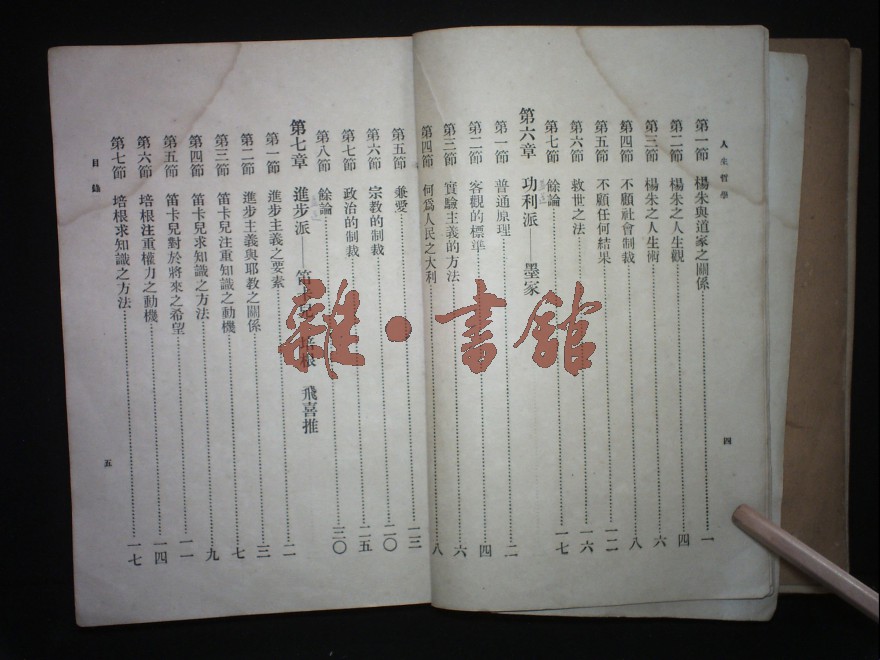 人生哲學
第一節　楊朱與道家之關係……一
第二節　楊朱之人生觀……四
第三節　楊朱之人生術……六
第四節　不顧社會制裁……八
第五節　不顧任何結果……一二
第六節　救世之法……一六
第七節　餘論……一七
第六章　功利派——墨家
第一節　普通原理……二
第二節　客觀的標準……四
第三節　實驗主義的方法……六
四
第四節　何爲人民之大利……八
第五節　兼愛……一三
第六節　宗教的制裁……二〇
第七節　政治的制裁……二五
第八節　餘論……三〇
第七章　進步派——笛卡兒　培根　飛喜推
第一節　進步主義之要素……二
第二節　進步主義與耶教之關係……三
第三節　笛卡兒注重知識之動機……七
第四節　笛卡兒求知識之方法……九
第五節　笛卡兒對於將來之希望……一一
第六節　培根注重權力之動機……一四
第七節　培根求知識之方法……一七
目錄
五
雜·書館